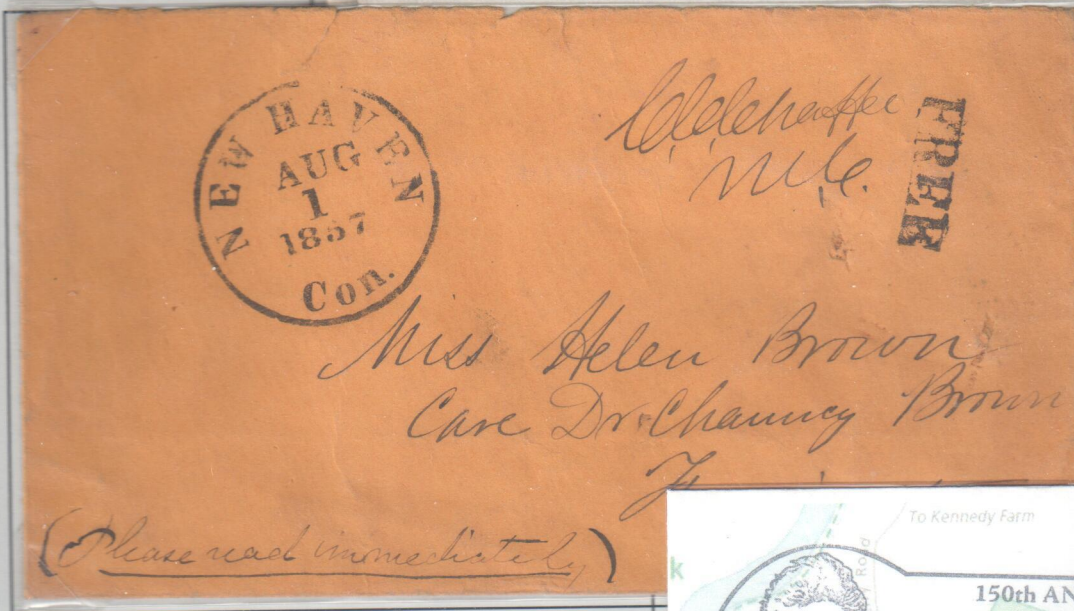 NEW HAVEN
AUG
1
1857
Con.
M.C.
FREE
Miss Helen Brown
Care Dr. Chauncy Brown
(Please read immediately)
To Kennedy Farm
Road
k
150th AN